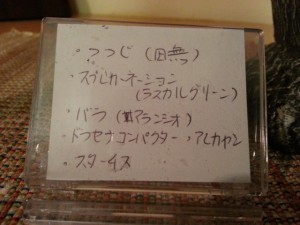 ・つつじ（固無）
・スプレカーネーション
（ラスカルグリーン）
・バラ（アランシオ）
・ドラセナコンパクター・アレカヤシ
・スターチス